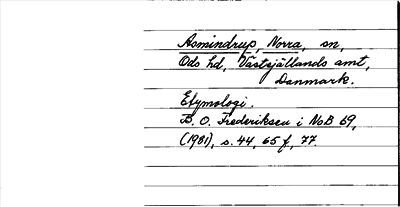 Asmindrup, Norra, sn,
Ods hd, Västsjällands amt,
Danmark.
Etymologi.
B. O. Frederiksen i NoB 69,
(1981), s. 44, 65 f, 77.